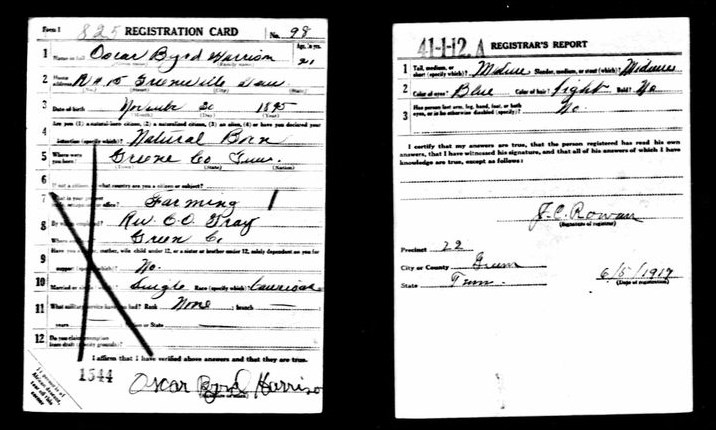 Form 1 825 REGISTRATION CARD No. 98
1 Oscar Byrd Harrison Age, in yrs. 21
2 Home address R # 5 Greeneville Tenn
3 Date of birth November 20 1895
(Month) (Day) (Year)
4 Are you (1) a natural-born citizen, (2) a naturalized citizen, (3) an alien, (4) or have you declared your
intention (specify which)? Natural Born
5 Where were you born? Greene Co Tenn.
(Town) (State) (Nation)
6 If not a citizen, of what country are you a citizen or subject?
7 What is your present trade, occupation, or office? Farming
8 By whom employed? C.O. Gray
Where Green C.
9 Have you a father, mother, wife, child under 12, or a sister or brother under 12, solely dependent on you for
support (specify which)? No.
10 Married or single Single Race (specify which)? Caucasian
11 What military service have you had? Rank None ; branch
years Nation or State
12 Do you claim exemption from draft (specify grounds)?
I affirm that I have verified above answers and that they are true.
1544
Oscar Byrd Harrison
41-1-12. A REGISTRAR'S REPORT
1 Tall, medium, or short (specify which)? Medium Slender, medium, or stout (which)? Medium
2 Color of eyes? Blue Color of hair? Light Bald? No
3 Has person lost arm, leg, hand, foot, or both eyes, or is he otherwise disabled (specify)? No.
I certify that my answers are true, that the person registered has read his own
answers, that I have witnessed his signature, and that all of his answers of which I have
knowledge are true, except as follows:
J. C. Rowan
(Signature of registrar)
Precinct 22
City or County Green
State Tenn.
6/5/1917
(Date of registration)